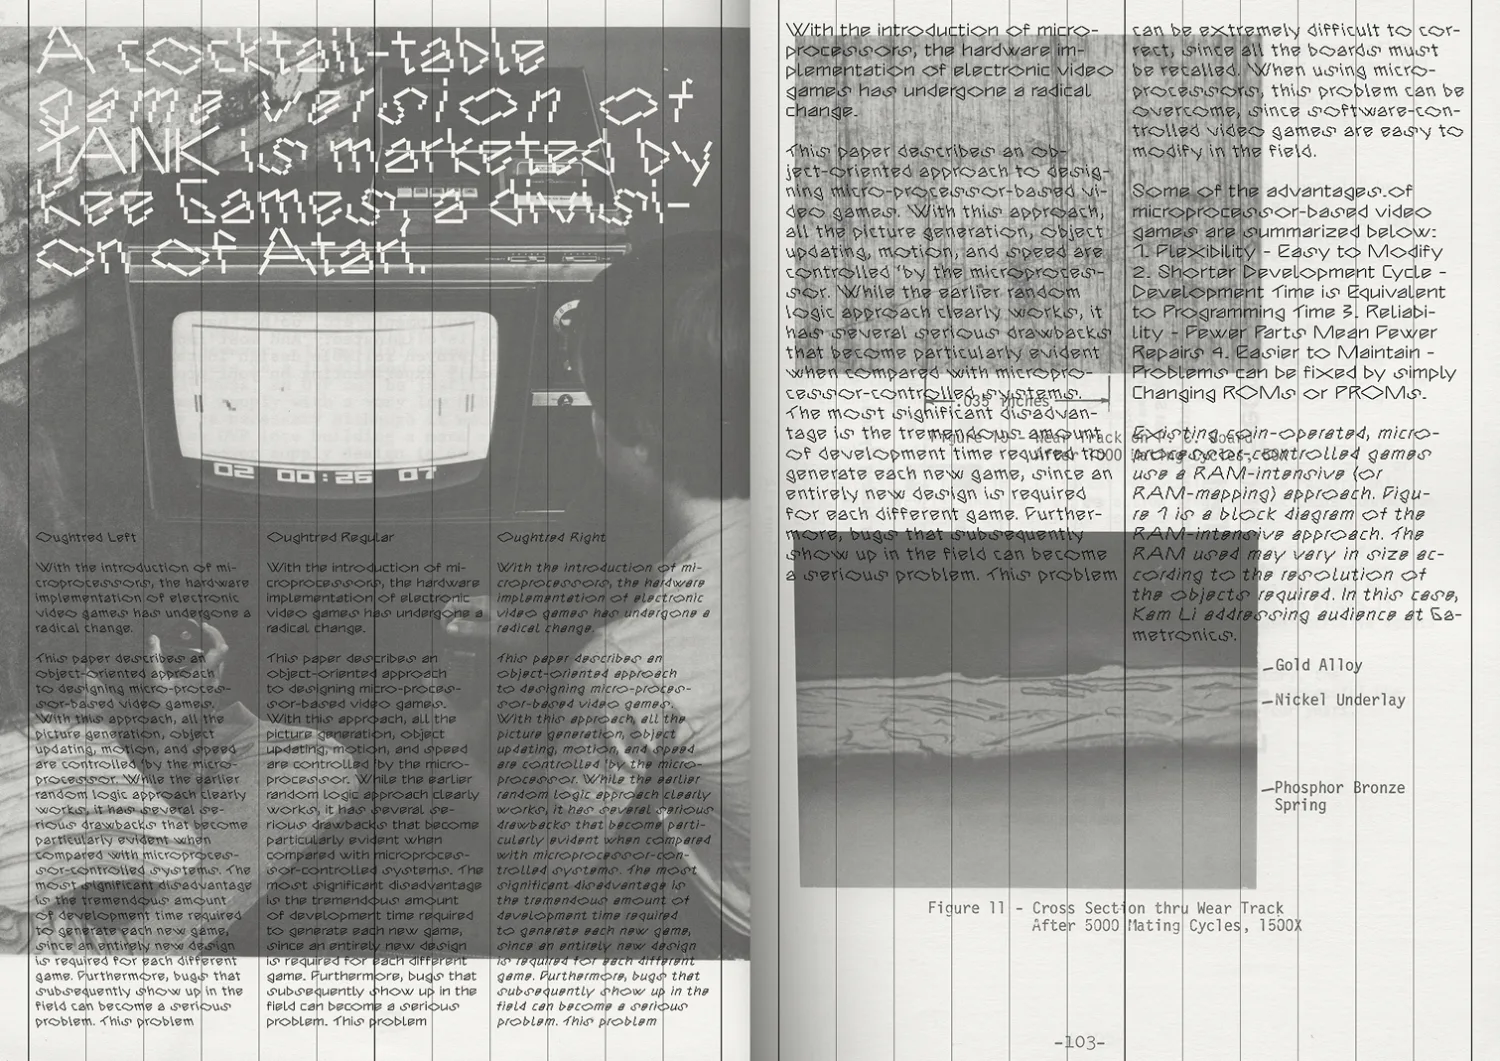 A cocktail-table
game version of
TANK is marketed by
Kee Games, a divisi-
on of Atari.
02 00:26 07
Oughtred Left
With the introduction of mi-
croprocessors, the hardware
implementation of electronic
video games has undergone a
radical change.
This paper describes an
object-oriented approach
to designing micro-proces-
sor-based video games.
With this approach, all the
picture generation, object
updating, motion, and speed
are controlled 'by the micro-
processor. While the earlier
random logic approach clearly
works, it has several se-
rious drawbacks that become
particularly evident when
compared with microproces-
sor-controlled systems. The
most significant disadvantage
is the tremendous amount
of development time required
to generate each new game,
since an entirely new design
is required for each different
game. Furthermore, bugs that
subsequently show up in the
field can become a serious
problem. This problem
Oughtred Regular
With the introduction of mi-
croprocessors, the hardware
implementation of electronic
video games has undergone a
radical change.
This paper describes an
object-oriented approach
to designing micro-proces-
sor-based video games.
With this approach, all the
picture generation, object
updating, motion, and speed
are controlled 'by the micro-
processor. While the earlier
random logic approach clearly
works, it has several se-
rious drawbacks that become
particularly evident when
compared with microproces-
sor-controlled systems. The
most significant disadvantage
is the tremendous amount
of development time required
to generate each new game,
since an entirely new design
is required for each different
game. Furthermore, bugs that
subsequently show up in the
field can become a serious
problem. This problem
Oughtred Right
With the introduction of mi-
croprocessors, the hardware
implementation of electronic
video games has undergone a
radical change.
This paper describes an
object-oriented approach
to designing micro-proces-
sor-based video games.
With this approach, all the
picture generation, object
updating, motion, and speed
are controlled 'by the micro-
processor. While the earlier
random logic approach clearly
works, it has several serious
drawbacks that become parti-
cularly evident when compared
with microprocessor-con-
trolled systems. The most
significant disadvantage is
the tremendous amount of
development time required
to generate each new game,
since an entirely new design
is required for each different
game. Furthermore, bugs that
subsequently show up in the
field can become a serious
problem. This problem
With the introduction of micro-
processors, the hardware im-
plementation of electronic video
games has undergone a radical
change.
This paper describes an ob-
ject-oriented approach to desig-
ning micro-processor-based vi-
deo games. With this approach,
all the picture generation, object
updating, motion, and speed are
controlled 'by the microproces-
sor. While the earlier random
logic approach clearly works, it
has several serious drawbacks
that become particularly evident
when compared with micropro-
cessor-controlled systems.
The most significant disadvan-
tage is the tremendous amount
of development time required to
generate each new game, since an
entirely new design is required
for each different game. Further-
more, bugs that subsequently
show up in the field can become
a serious problem. This problem
can be extremely difficult to cor-
rect, since all the boards must
be recalled. When using micro-
processors, this problem can be
overcome, since software-con-
trolled video games are easy to
modify in the field.
Some of the advantages.of
microprocessor-based video
games are summarized below:
1. Flexibility - Easy to Modify
2. Shorter Development Cycle -
Development Time is Equivalent
to Programming Time 3. Reliabi-
lity - Fewer Parts Mean Fewer
Repairs 4. Easier to Maintain -
Problems can be fixed by simply
Changing ROMs or PROMs.
Existing coin-operated, micro-
processor-controlled games
use a RAM-intensive (or
RAM-mapping) approach. Figu-
re 1 is a block diagram of the
RAM-intensive approach. The
RAM used may vary in size ac-
cording to the resolution of
the objects required. In this case,
Kam Li addressing audience at Ga-
metronics.
.035 inches
Figure 10 - Wear Track on P. C. Board
After 5000 Mating Cycles,
Gold Alloy
Nickel Underlay
Phosphor Bronze
Spring
Figure 11 - Cross Section thru Wear Track
After 5000 Mating Cycles, 1500X
-103-